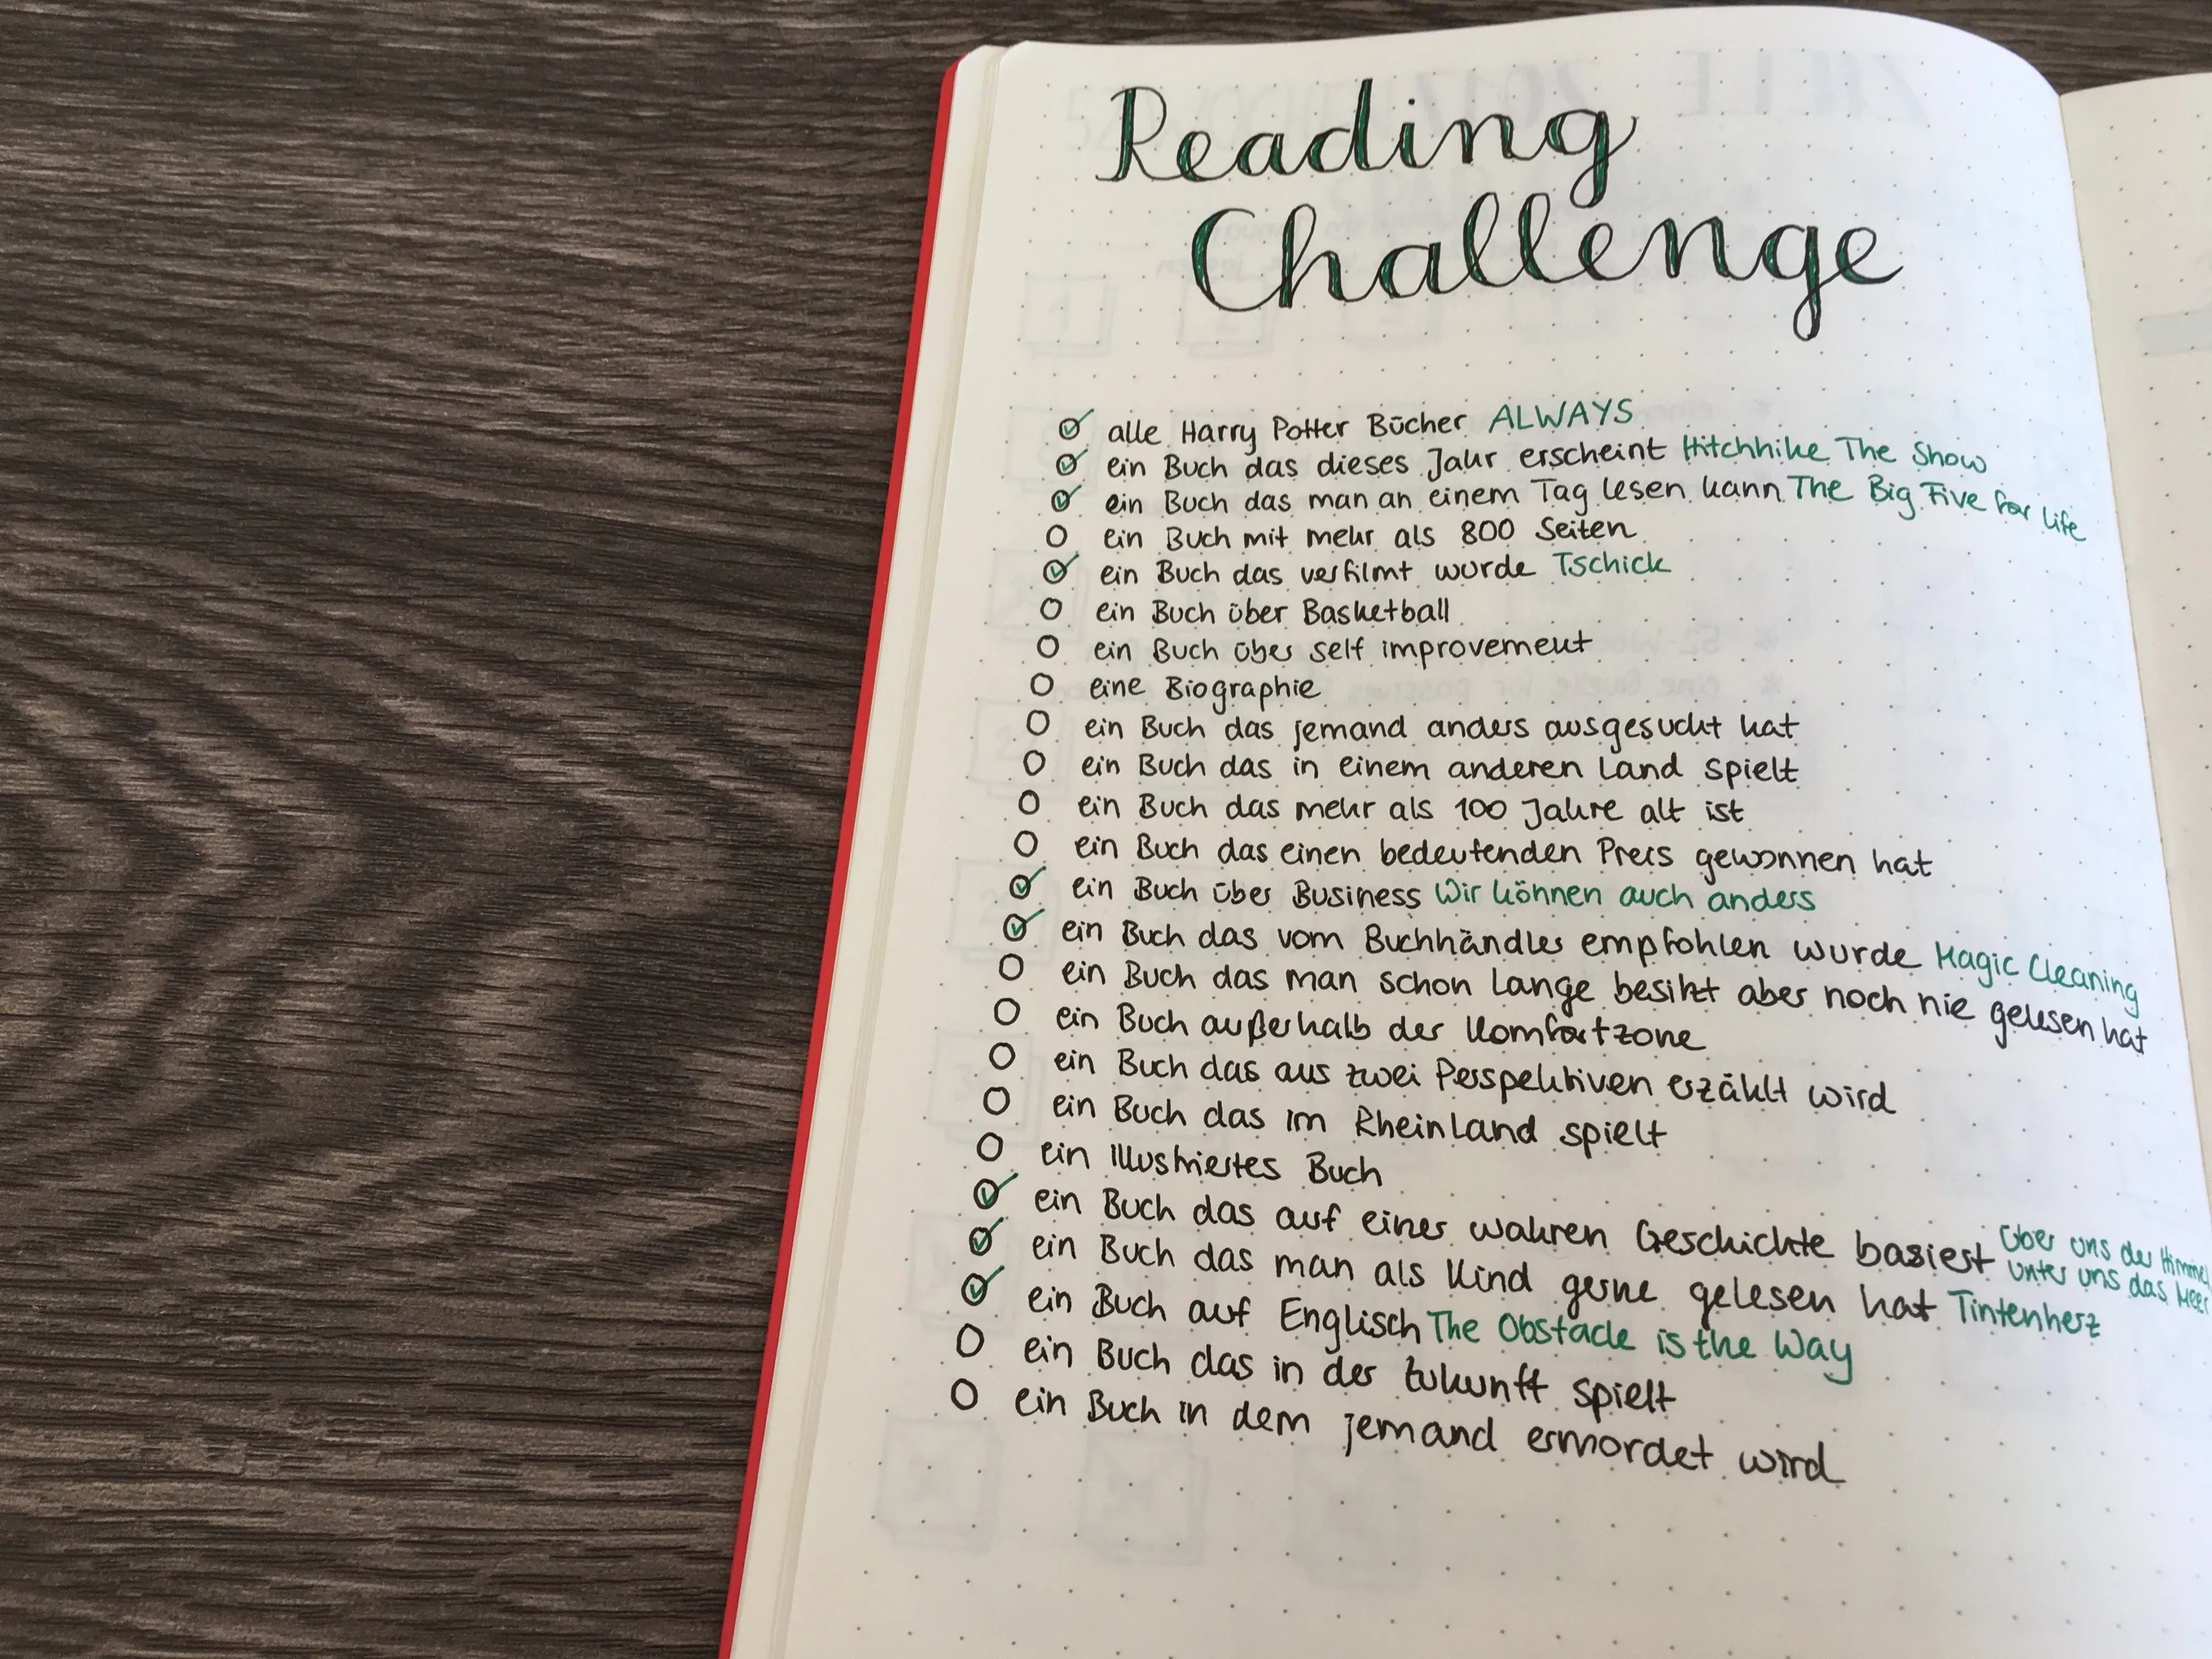 Reading
Challenge
alle Harry Potter Bücher ALWAYS
ein Buch das dieses Jahr erscheint Hitchhike The Show
ein Buch das man an einem Tag lesen kann The Big Five for Life
ein Buch mit mehr als 800 Seiten
ein Buch das verfilmt wurde Tschick
ein Buch über Basketball
ein Buch über self improvement
eine Biographie
ein Buch das jemand anders ausgesucht hat
ein Buch das in einem anderen Land spielt
ein Buch das mehr als 100 Jahre alt ist
ein Buch das einen bedeutenden Preis gewonnen hat
ein Buch über Business Wir können auch anders
ein Buch das vom Buchhändler empfohlen wurde Magic Cleaning
ein Buch das man schon lange besitzt aber noch nie gelesen hat
ein Buch außerhalb der Komfortzone
ein Buch das aus zwei Perspektiven erzählt wird
ein Buch das im Rheinland spielt
ein illustriertes Buch
ein Buch das auf einer wahren Geschichte basiert Über uns der Himmel
unter uns das Meer
ein Buch das man als Kind gerne gelesen hat Tintenherz
ein Buch auf Englisch The Obstacle is the Way
ein Buch das in der Zukunft spielt
ein Buch in dem jemand ermordet wird